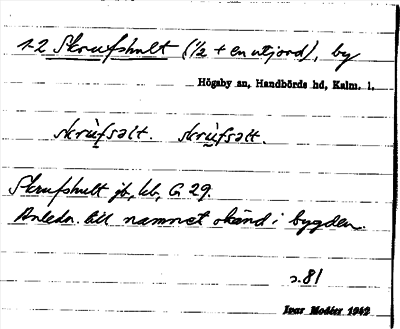 1-2 Skrufshult (1/2 + en utjord), by
Högsby sn, Handbörds hd, Kalm. l.
skrùfsalt. skrùfsatt.
Skrufshult jb, kb, G 29.
Anledn. till namnet okänd i bygden.
s. 81
Ivar Modéer 1942